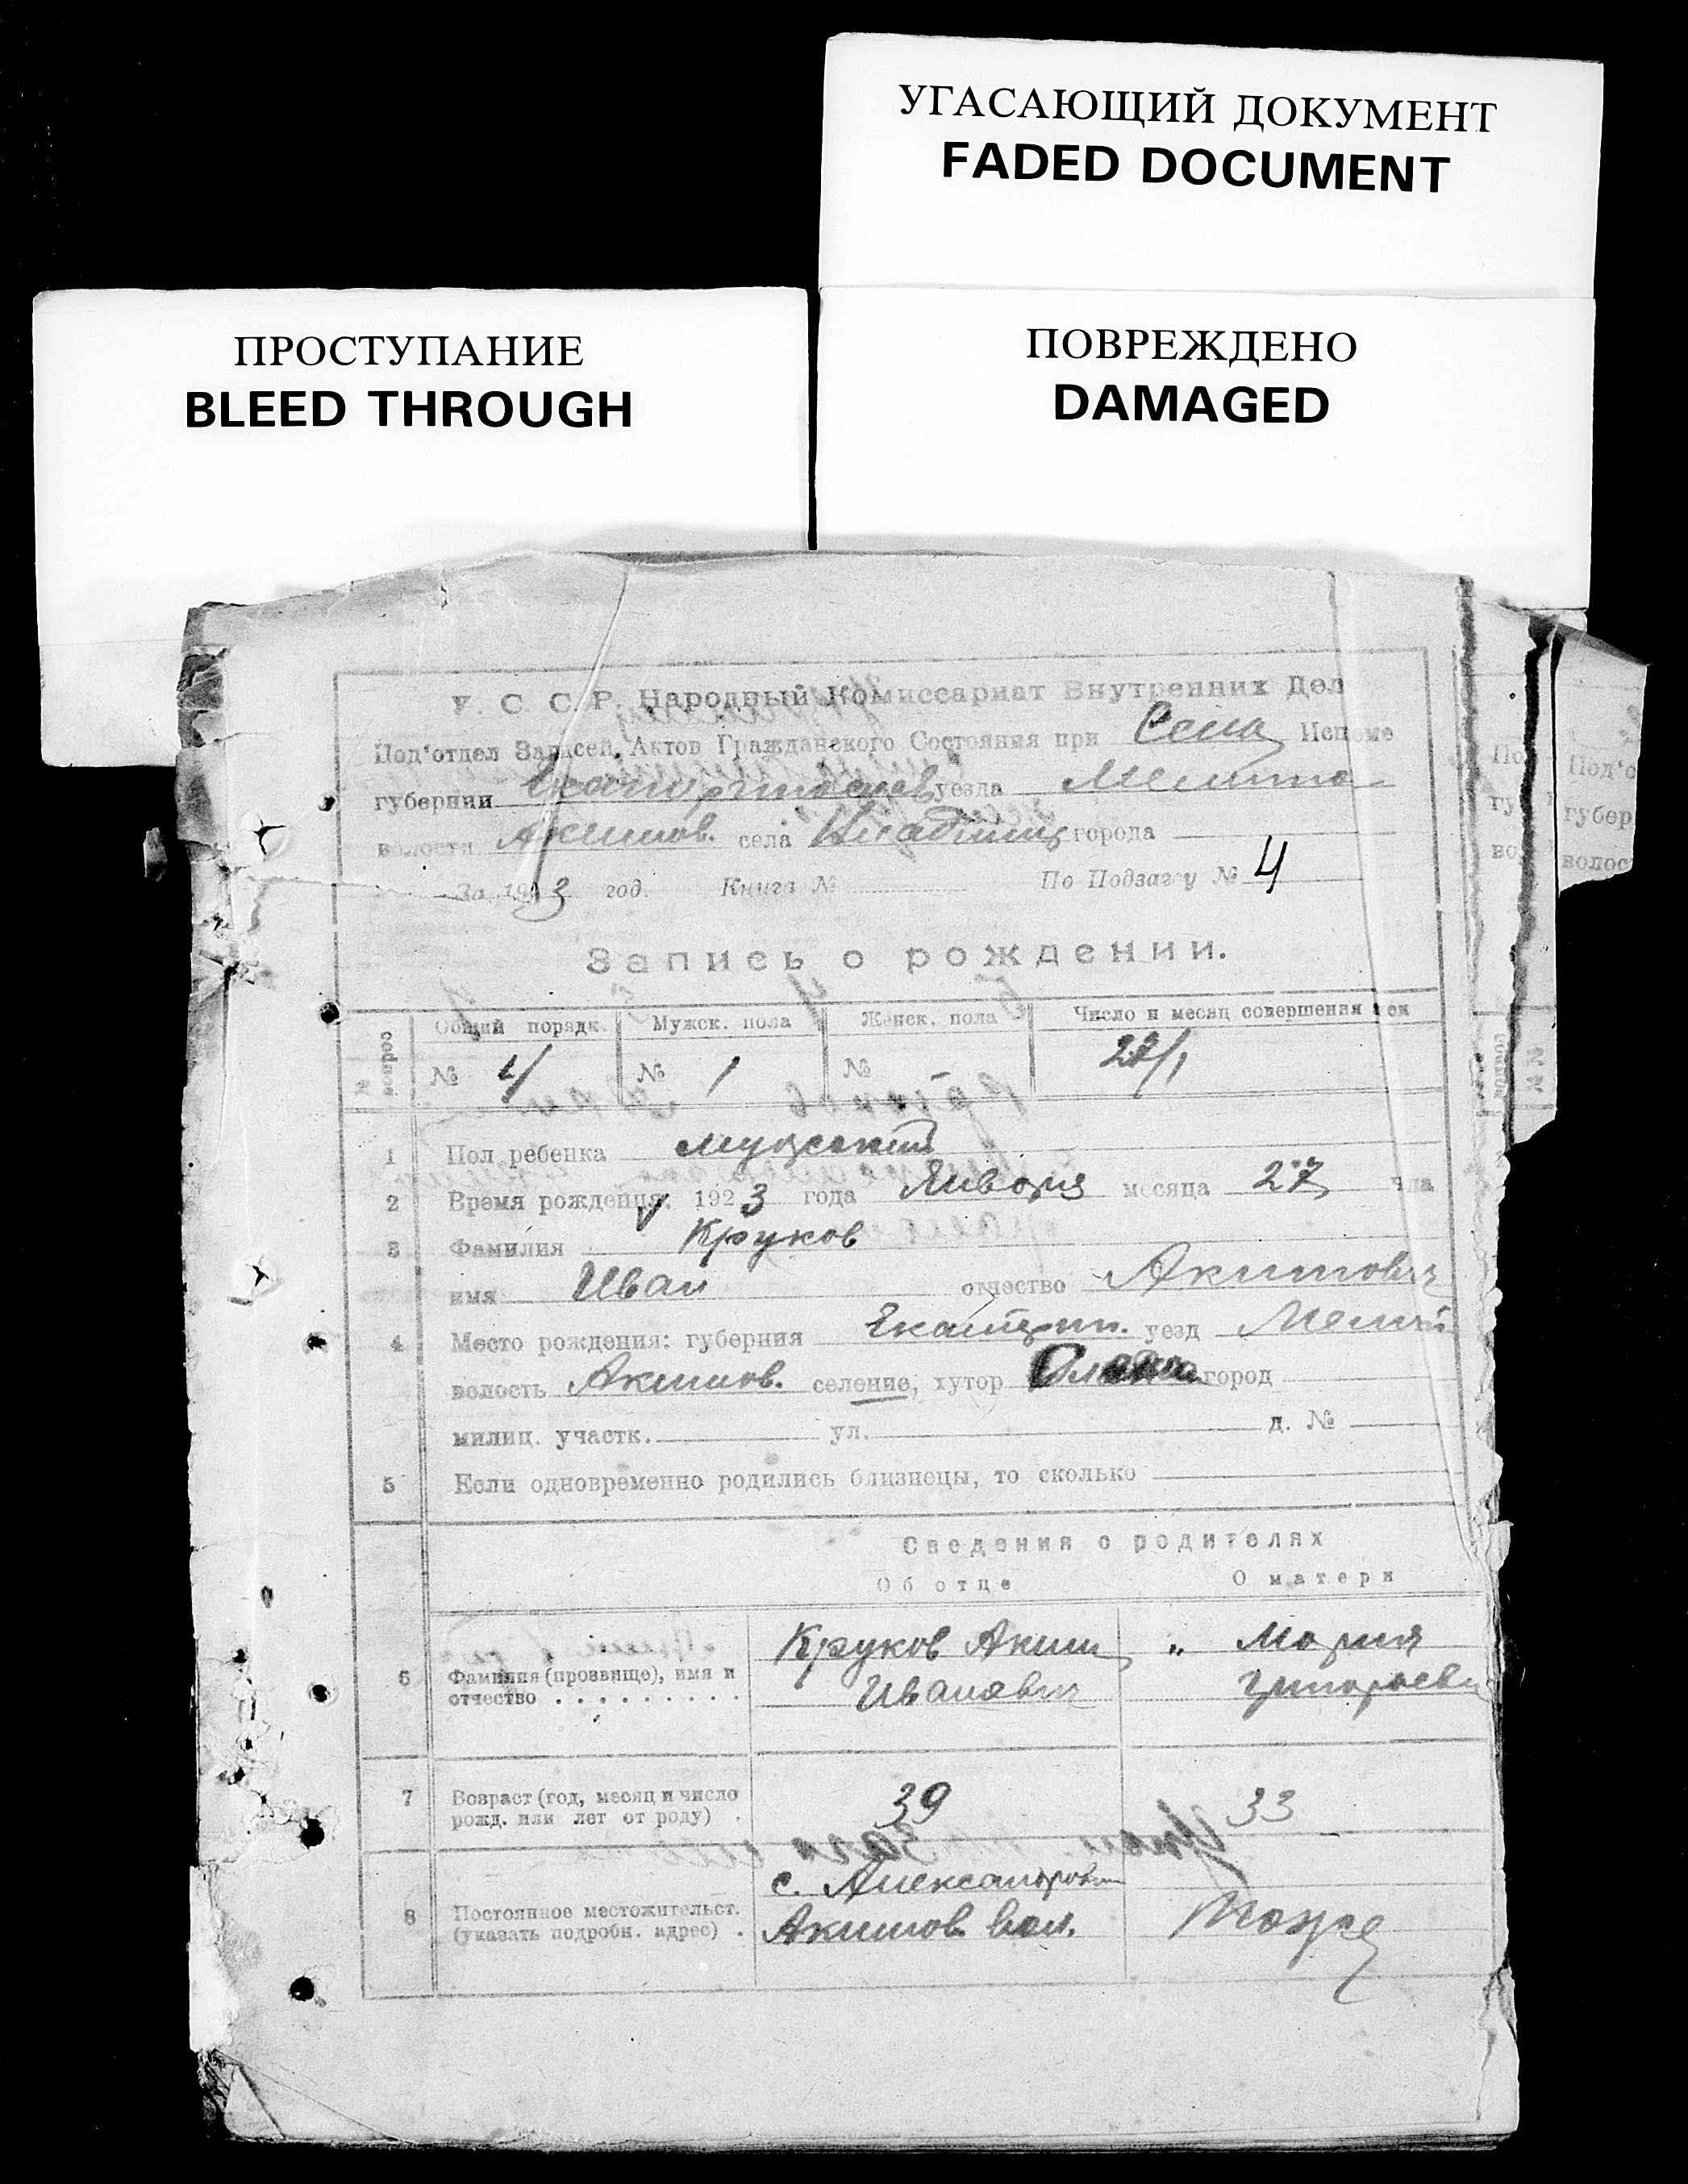 УГАСАЮЩИЙ ДОКУМЕНТ
FADED DOCUMENT
ПРОСТУПАНИЕ
BLEED THROUGH
ПОВРЕЖДЕНО
DAMAGED
У. С. С. Р. Народный Комиссариат Внутренних Дел
Под'отдел Записей Актов Гражданского Состояния при Исполме
губернии уезда Мелито
волости Акимов. села города
За 1923 год. Книга № По Подзагсу № 4
Запись о рождении.
Общий порядк. Мужск. пола Женск. пола Число и месяц совершения
№ 4 № 1 № 27/1
1 Пол ребенка мужской
2 Время рождения: 1923 года Января месяца 27 чла
3 Фамилия Круков
имя Иван отчество Акимович
4 Место рождения: губерния Екатерин. уезд Мелит
волость Акимов. селение, хутор город
милиц. участк. ул. д. №
5 Если одновременно родились близнецы, то сколько
Сведения о родителях
Об отце О матери
6 Фамилия (прозвище), имя и отчество Круков Аким Иванович " Мария Григорьевн
7 Возраст (год, месяц и число рожд. или лет от роду) 39 33
8 Постоянное местожительст. (указать подробн. адрес) с. Александровк Акимов вол. Тоже